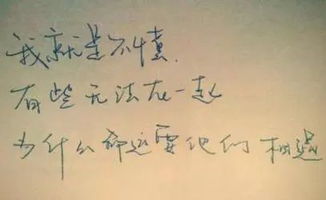 我就是不懂.
有些无法在一起
为什么命运要他们相遇